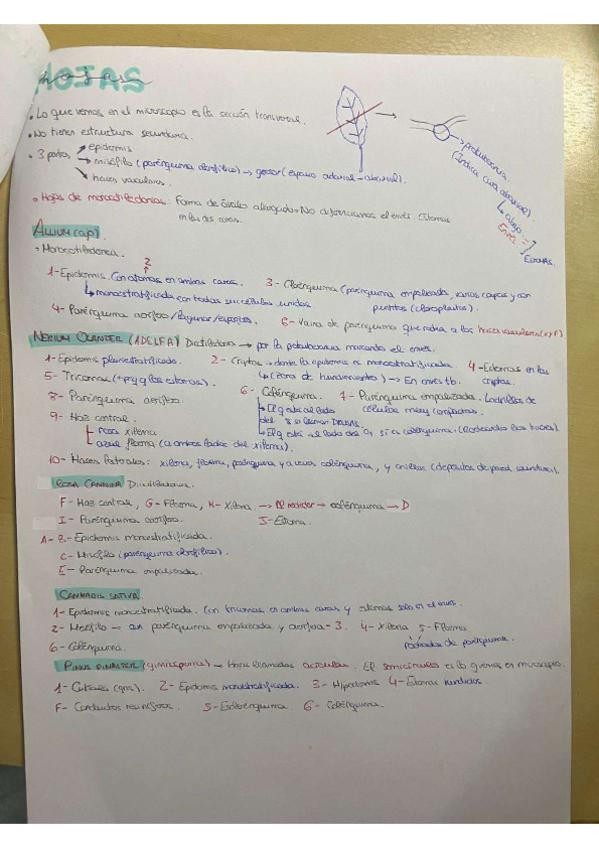 HOJAS
• Lo que vemos en el microscopio es la sección transversal.
• No tienen estructura secundaria.
• 3 partes
epidermis
mesófilo (parénquima clorofílico) → grosor (espacio adaxial-abaxial).
haces vasculares.
protuberancia
(Indica cara abaxial)
↳ abajo =
Envés
• Hojas de monocotiledóneas: Forma de óvalo alargado. No diferenciamos el envés. Estomas
en las dos caras.
ALLIUM (ajo)
→ Monocotiledónea
2
1- Epidermis. Con estomas en ambas caras.
↳ monoestratificada con todas sus células unidas
3 - Clorénquima (parénquima empalizada, varias capas y con
puntitos (cloroplastos).
4- Parénquima acuífero/lagunar/esponjoso.
6- Vaina de parénquima que rodea a los haces vasculares (x y F)
NERIUM OLANDER (ADELFA) Dicotiledónea → por la protuberancia marcando el envés.
1- Epidermis pluriestratificada.
2- Criptas → donde la epidermis es monoestratificada.
↳ (zona de hundimientos) → En envés tb.
4- Estomas en las
criptas.
5- Tricomas (+ prg q los estomas).
6- Colénquima.
7- Parénquima empalizada. Ladrillos de
células muy apretadas.
8- Parénquima acuífero
9- Haz central.
rosa xilema
azul floema (a ambos lados del xilema).
10- Haces laterales: xilema, floema, parénquima y a veces colénquima, y
ROSA CANINA Dicotiledónea.
F- Haz central, G- Floema, H- Xilema → Alrededor → colénquima → D
I- Parénquima acuífero.
J- Estoma.
A- B- Epidermis monoestratificada.
C- Mesófilo (parénquima clorofílico).
E- Parénquima empalizada.
CANNABIS SATIVA
1- Epidermis monoestratificada. Con tricomas en ambas caras y estomas solo en el envés.
2- Mesófilo → con parénquima empalizada y acuífero - 3. 4- Xilema 5- Floema
rodeados de parénquima.
6- Colénquima
PINUS PINASTER (gimnosperma) → Hojas llamadas aciculares. El semicírculo es lo q vemos en microscopio.
1- Cutícula (gris). 2- Epidermis monoestratificada. 3- Hipodermis 4- Estomas hundidos.
F- Conductos resiníferos. 5- Esclerénquima 6- Colénquima.